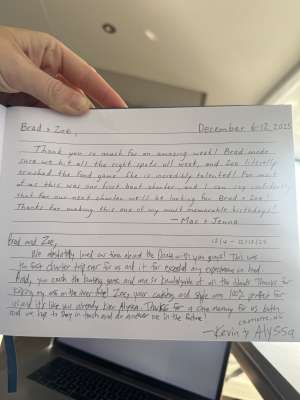 Brad & Zoe, December 6-12, 2025
Thank you so much for an amazing week! Brad made
sure we hit all the right spots all week, and Zoe literally
smashed the food game. She is incredibly talented! For most
of us this was our first boat charter, and I can say confidently
that for our next charter we'll be looking for Brad & Zoe!
Thanks for making this one of my most memorable birthdays!
— Mac & Jenna
Brad and Zoe, 12/14 - 12/19/25
We absolutely loved our time aboard the with you guys! This was
the first charter trip ever for us and it far exceeded any experience we had.
Brad, you the game and me in of the islands. Thanks for
taking me on the Zoe, your cooking and style was 100% perfect for
us and it's like you already knew Alyssa. Thanks for a memory for us both
and we hope to stay in touch and do another one in the future!
Charlotte, NC
— Kevin & Alyssa